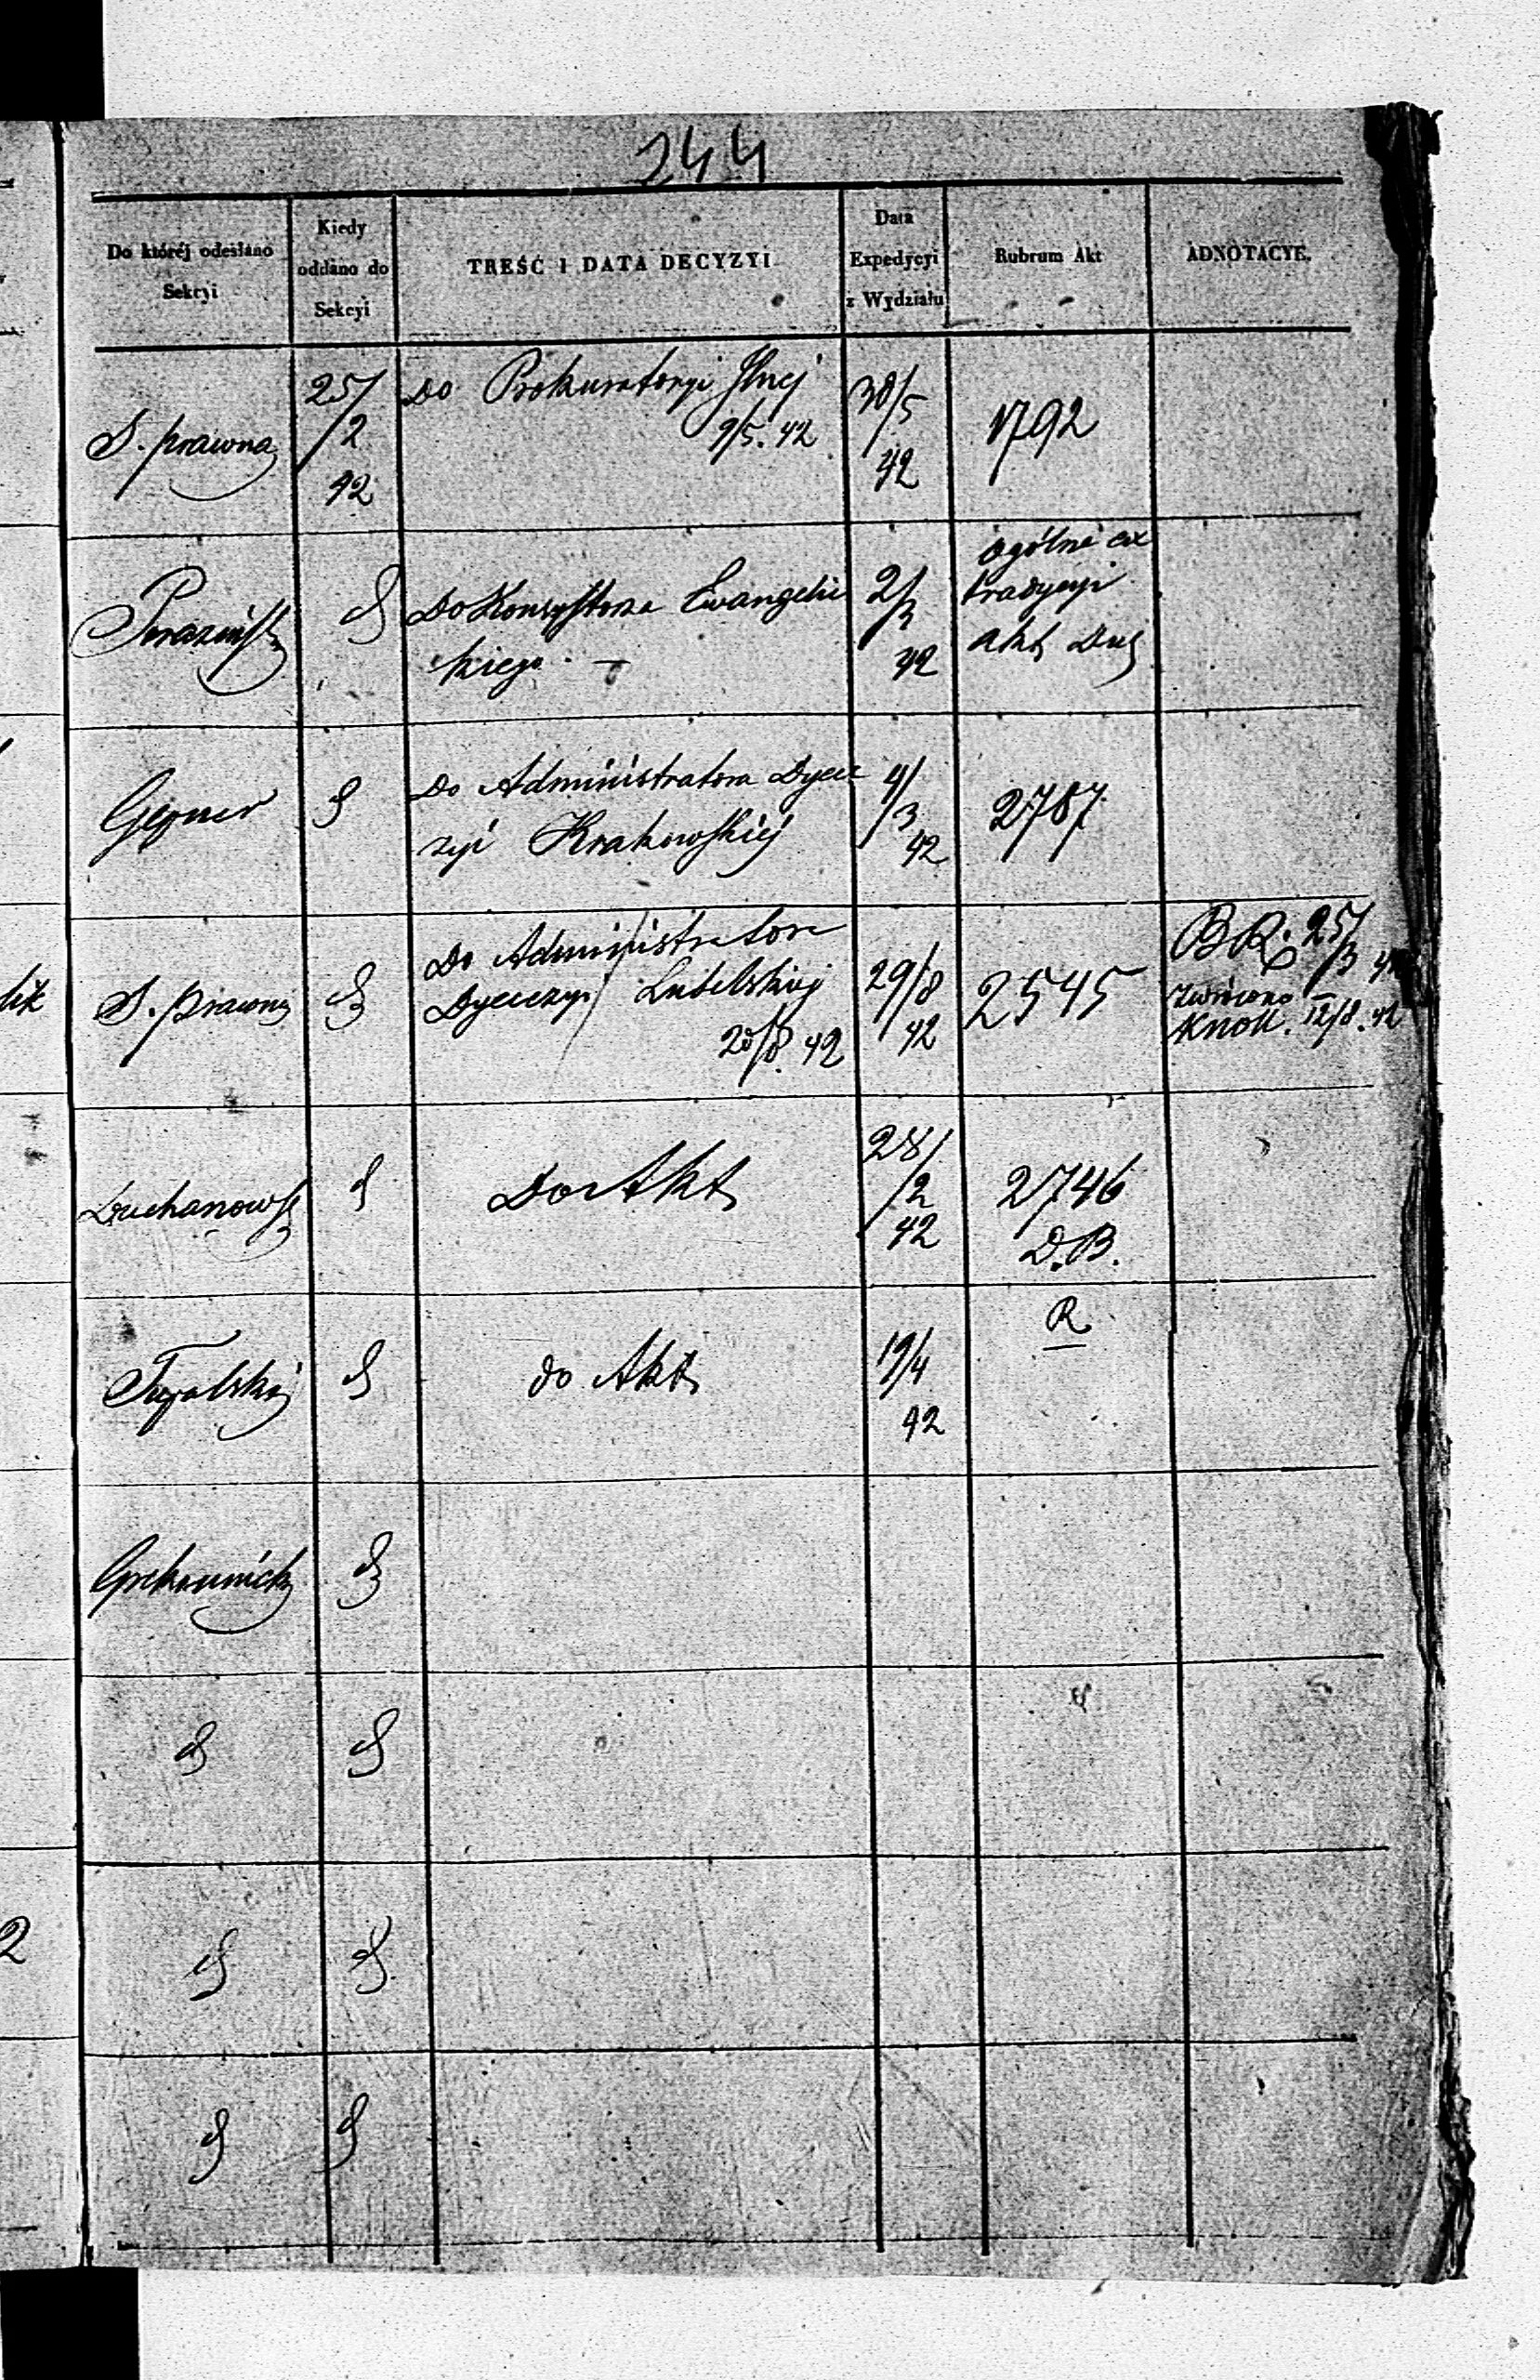 244
Do któréj odesłano
Sekcyi
Kiedy
oddano do
Sekcyi
TREŚĆ I DATA DECYZYI
Data
Expedycyi
z Wydziału
Rubrum Akt
ADNOTACYE.
S. prawna
25/
/2
42
Do Prokuratoryi
9/5. 42
/5
42
1792
Do Konsystorza Ewangelic
kiego. —
2/3
42
ogólne ex
tradycyi
akt
Do Administratora Dyece
zyi Krakowskiéj
4/
/3
42
2787
S. prawna
Do Administratora
Dyecezyi Lubelskiéj
20/8. 42
29/8
42
2545
BR. 25/
/3 42
zwrócono
Knoll. 12/8. 42
Do Akt
28/
/2
42
2746
D.B.
do Akt
19/4
42
R